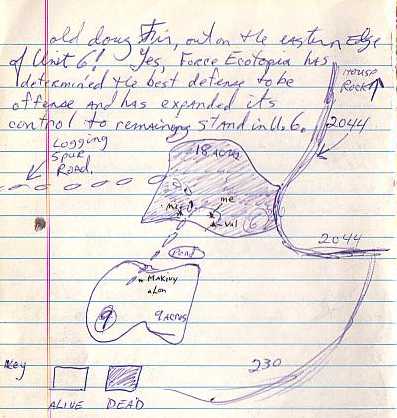 old doug fir, out on the eastern edge
of Unit 6! Yes, Force Ecotopia has
determined the best defense to be
offense and has expanded its
control to remaining stand in U. 6.
House
Rock
Logging
Spur
Road.
2044
18 Acres
me
Val
6
2044
Pond
Lon
9
9 Acres
Key
230
ALIVE
DEAD